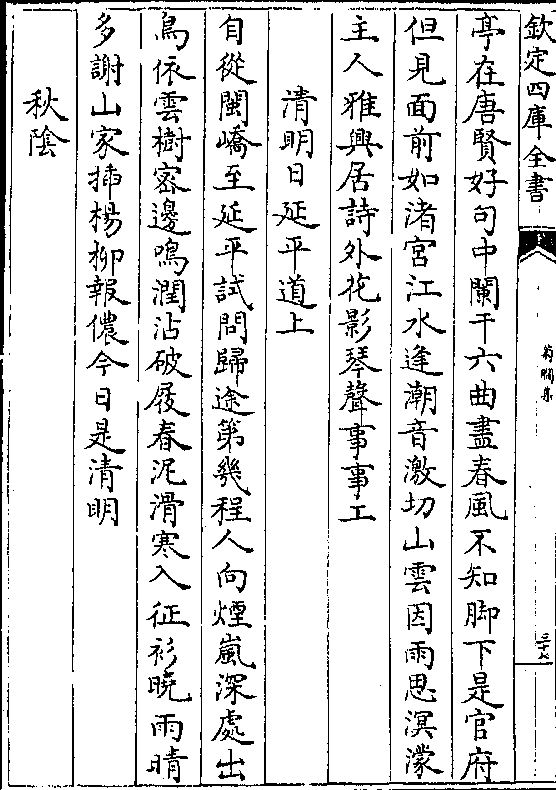 欽定四庫全書
菊磵集
三十七
亭在唐賢好句中闌干六曲盡春風不知脚下是官府
但見面前如渚宮江水逢潮音激切山雲因雨思溟濛
主人雅興居詩外花影琴聲事事工
清明日延平道上
自從閩嶠至延平試問歸途第幾程人向煙嵐深處出
鳥依雲樹宻邊鳴潤沾破屐春泥滑寒入征衫曉雨晴
多謝山家插楊柳報儂今日是清明
秋陰